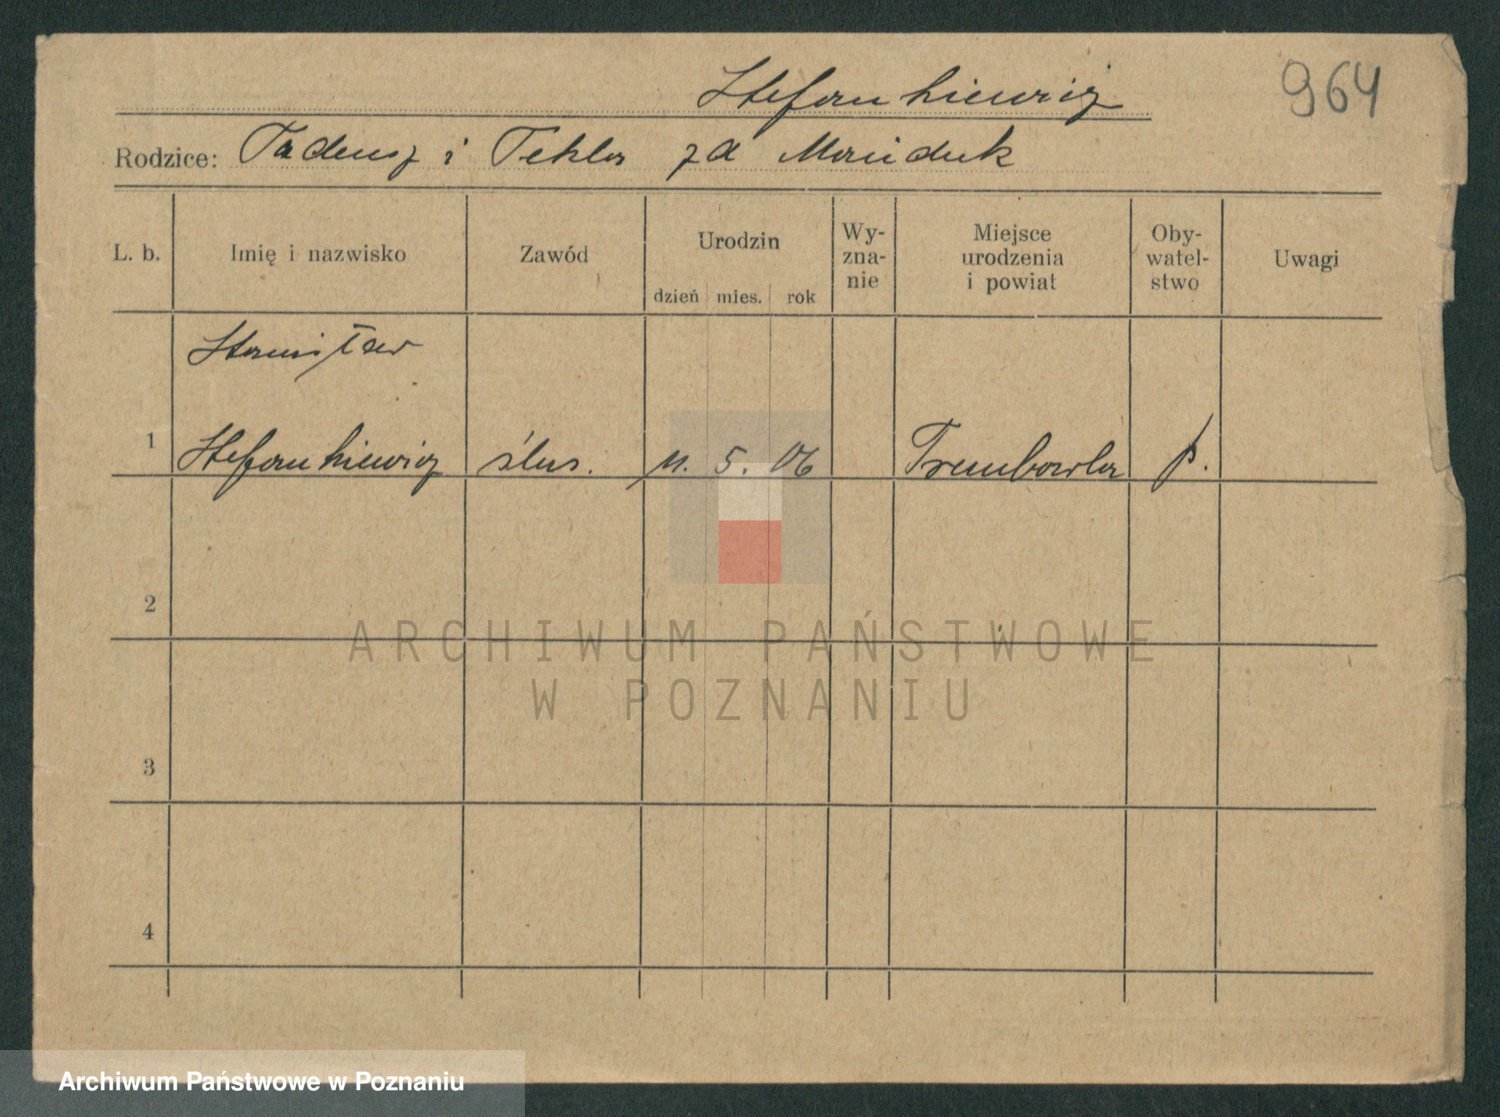 Stefankiewicz
964
Rodzice: Tadeusz i Tekla za Maniduk
L. b. Imię i nazwisko Zawód Urodzin dzień mies. rok Wy-zna-nie Miejsce urodzenia i powiat Oby-watel-stwo Uwagi
Stanisław
1 Stefankiewicz ślus. 11. 5. 06 Trembowla p.
2
ARCHIWUM PAŃSTWOWE
W POZNANIU
3
4
Archiwum Państwowe w Poznaniu